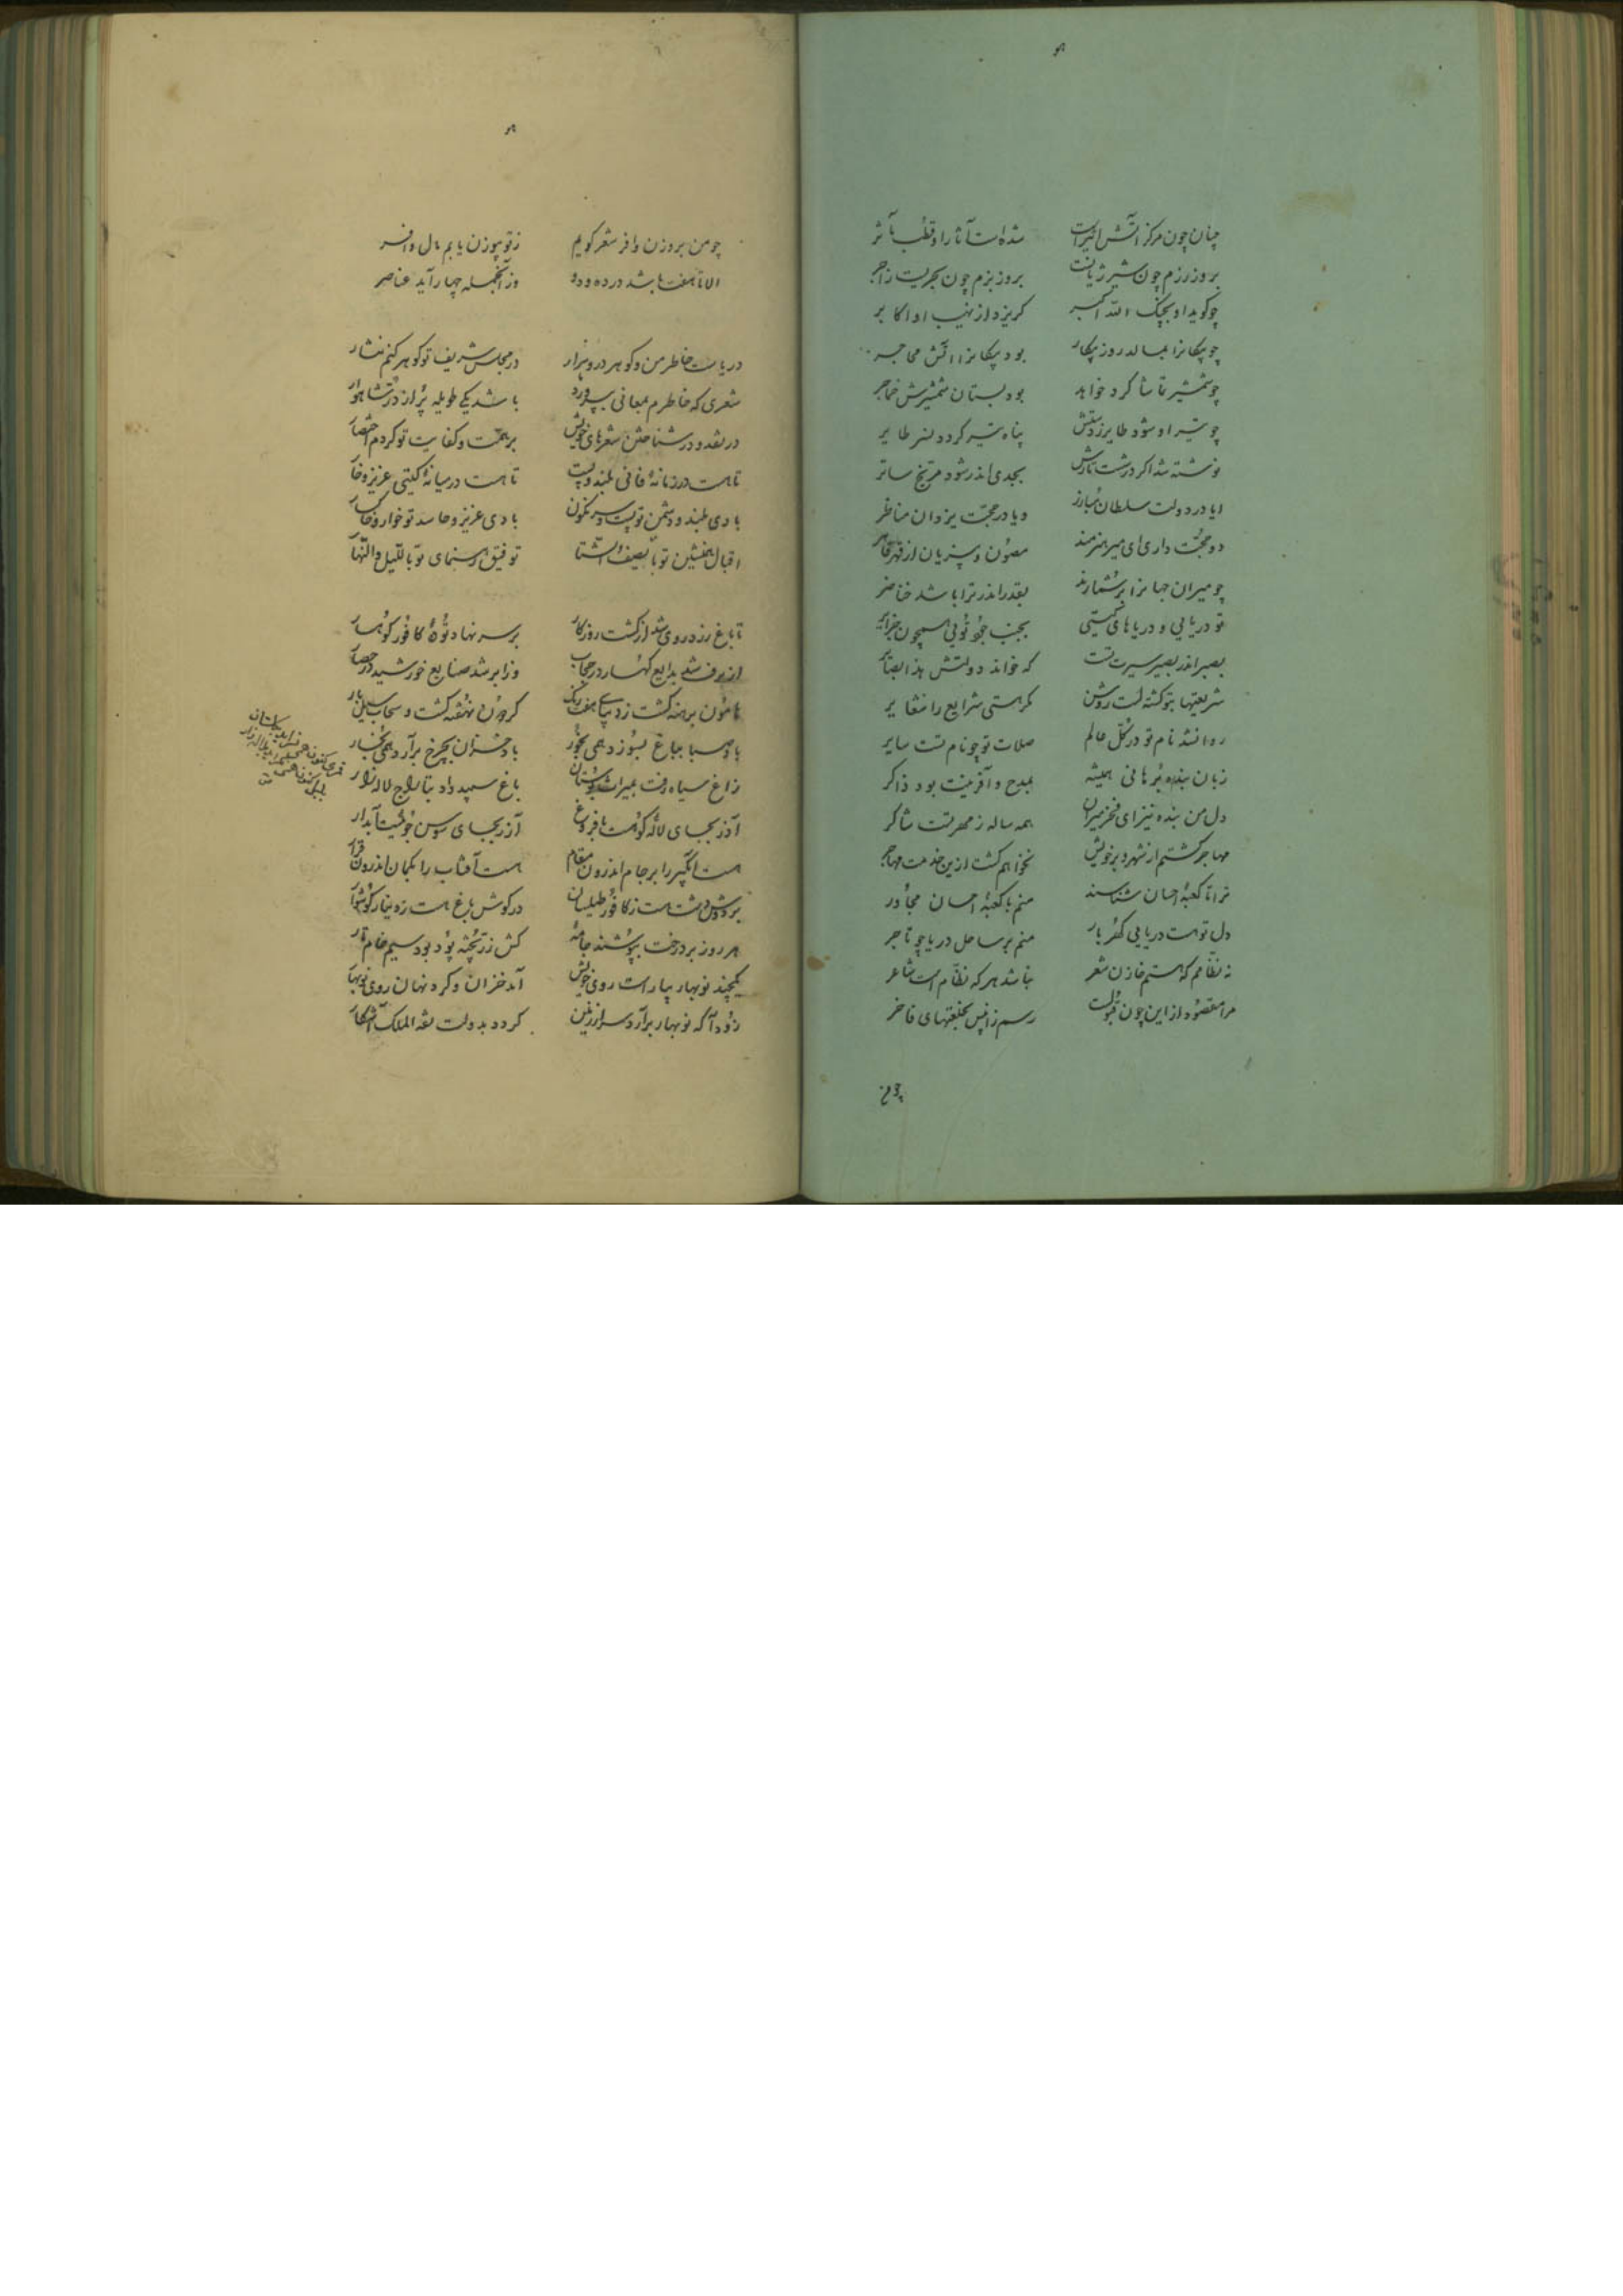 هو
چنان چون مرکز آتش اثیر است شده است آثار او قطب مآثر
بروز رزم چون شیر ژیانست بروز بزم چون بحریست زاخر
چو گوید او بجنگ الله اکبر گریزد از نهیب او اکابر
چو پیکانرا بمالد روز پیکار بود پیکانرا آتش محاجر
چو شمشیر تماشا کرد خواهد بود بستان شمشیرش خناجر
چو تیر او شود طایر ز دستش پناه تیر گردد نسر طایر
نوشته شد اگر در شست نارش بجدی اندر شود مریخ ساتر
ایا در دولت سلطان مبارز و یا در حجت یزدان مناظر
دو حجت داری ای میر هنرمند مصون و بیزیان از قهر قاهر
چو میران جهانرا برشمارند بقدر اندر ترا باشد خناصر
تو دریایی و دریاهای گیتی بجنب جود تو فی همچون جزایر
بصیر اندر بصیر سیرت تست که خواند دولتش هذا بصائر
شریعتها بتو گشته است روشن مگر هستی شرایع را مغایر
روانشد نام تو در کل عالم صلات تو چو نام تست سایر
زبان بنده برهانی همیشه بمدح و آفرینت بود ذاکر
دل من بنده نیز ای فخر میران همه ساله ز مهر تست شاکر
مهاجر گشتم از شهر و بر خویش نخواهم گشت ازین خدمت مهاجر
ترا تا کعبهٔ احسان شناسند منم با کعبهٔ احسان مجاور
دل تو هست دریایی گهر بار منم بر ساحل دریا چو تاجر
نه نظامم که هستم خازن شعر نباشد هر که نظام است شاعر
مرا مقصود از این چون قبولست رسم زانپس بخلعتهای فاخر
چو من
هو
چو من بر وزن وافر شعر گویم ز تو بیوزن یابم مال وافر
الا تا هفت باشد در ده و دو وز آنجمله چهار آید عناصر
دریاست خاطر من و گوهر درو هزار در مجلس شریف تو گوهر کنم نثار
شعری که خاطرم بمعانی بپرورد باشد یکی طویله پر از در شاهوار
در نقد و در شناختن شعرهای خویش بر همت و کفایت تو کردم اختصار
تا هست در زمانهٔ فانی بلند و پست تا هست در میانهٔ گیتی عزیز و خوار
بادی بلند و دشمن تو پست و سرنگون بادی عزیز و حاسد تو خوار و خاکسار
اقبال همنشین تو بالصیف و الشتا توفیق رهنمای تو باللیل و النهار
تا باغ زرد روی شد از گشت روزگار بر سر نهاد تودهٔ کافور کوهسار
از برف شد بدایع کهسار در حجاب وز ابر شد صنایع خورشید در حصار
هامون برهنه گشت ز دیبای هفت رنگ گردون نهفته گشت و سحاب سیل بار
باد صبا بباغ بسوزد همی بخور باد خزان بچرخ برآرد همی بخار
زاغ سیاه رفت بمیراث بوستان باغ سپید داد بتاراج لاله زار
آذر بجای لاله کوهست با فروغ آزر بجای سوسن جویست آبدار
هست آبگیر را بر جام اندرون مقام هست آفتاب را بکمان اندرون قرار
بر دوش دشت هست ز کافور طیلسان در گوش باغ هست ز دینار گوشوار
هر روز بر درخت بپوشند جامهٔ کش زر پخته پود بود سیم خام تار
یکچند نوبهار بیاراست روی خویش آمد خزان و کرد نهان روی نوبهار
زود آ که نوبهار برآرد سر از زمین گردد بدولت ثقة الملک آشکار